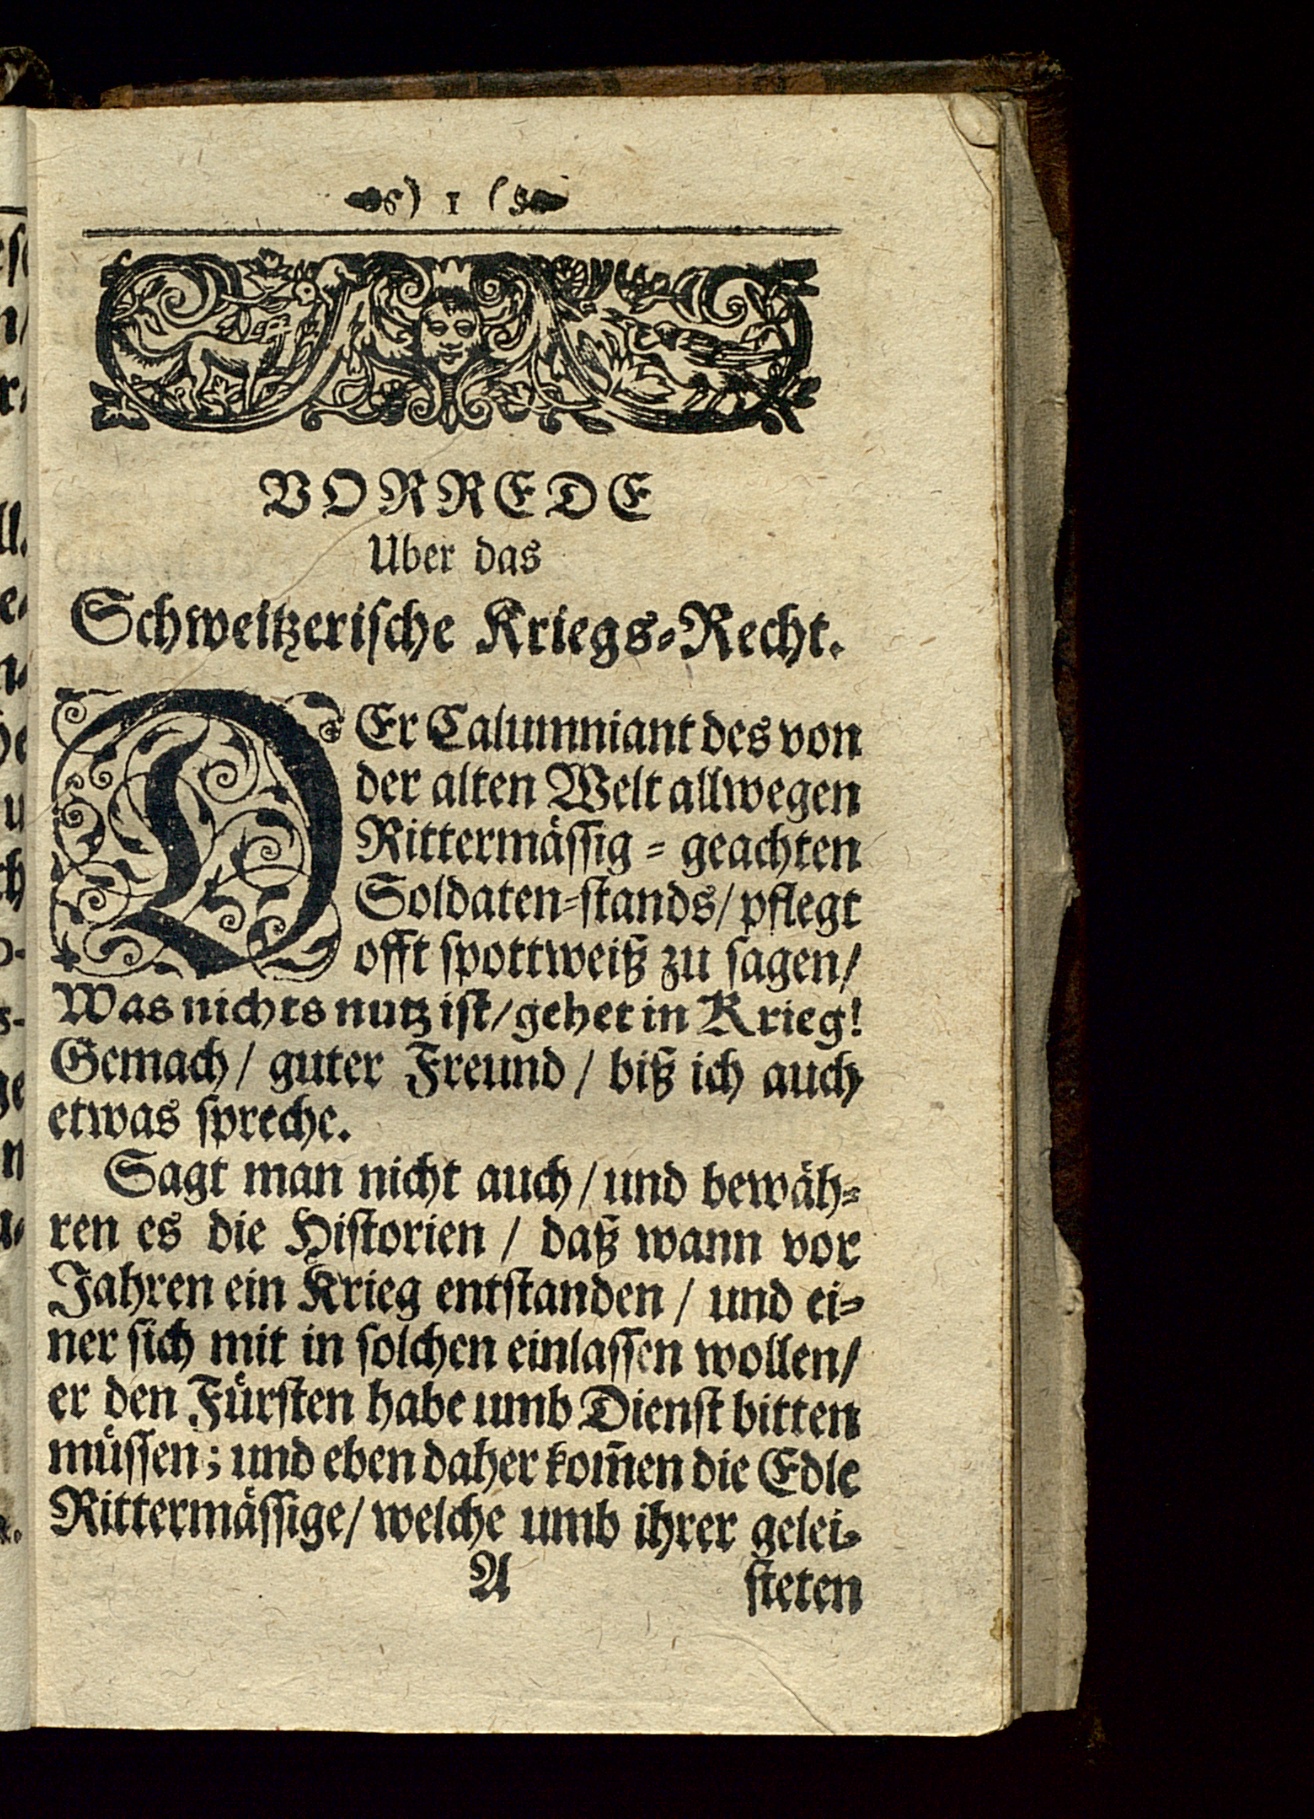 ) 1 (
VORREDE
Uber das
Schweitzerische Kriegs-Recht.
DEr Calumniant des von
der alten Welt allwegen
Rittermässig - geachten
Soldaten-stands/ pflegt
offt spottweiß zu sagen/
Was nichts nutz ist/ gehet in Krieg!
Gemach/ guter Freund/ biß ich auch
etwas spreche.
Sagt man nicht auch/ und bewäh-
ren es die Historien/ daß wann vor
Jahren ein Krieg entstanden/ und ei-
ner sich mit in solchen einlassen wollen/
er den Fürsten habe umb Dienst bitten
müssen; und eben daher kom̃en die Edle
Rittermässige/ welche umb ihrer gelei-
A steten